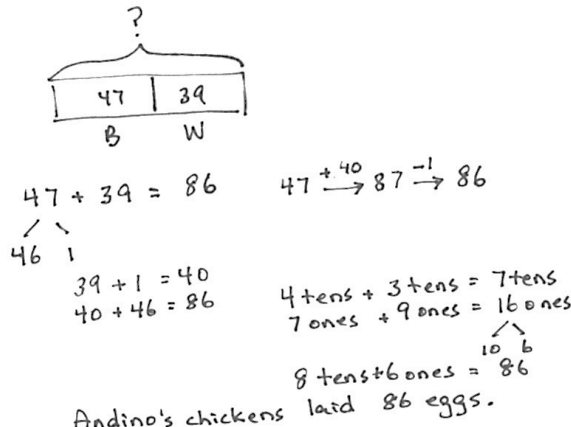 ?
47 39
B W
47 + 39 = 86
46 1
39 + 1 = 40
40 + 46 = 86
47 +40 → 87 -1 → 86
4 tens + 3 tens = 7 tens
7 ones + 9 ones = 16 ones
10 6
8 tens + 6 ones = 86
Andino's chickens laid 86 eggs.